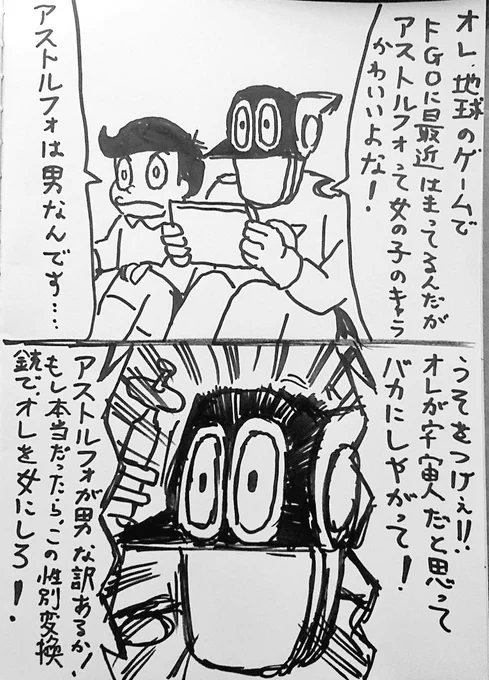 オレ、地球のゲームで
FGOに最近はまってるんだが
アストルフォって女の子のキャラ
かわいいよな！
アストルフォは男なんです…
うそをつけぇ!!
オレが宇宙人だと思って
バカにしやがって！
アストルフォが男な訳あるか！
もし本当だったら、この性別変換
銃で、オレを女にしろ！